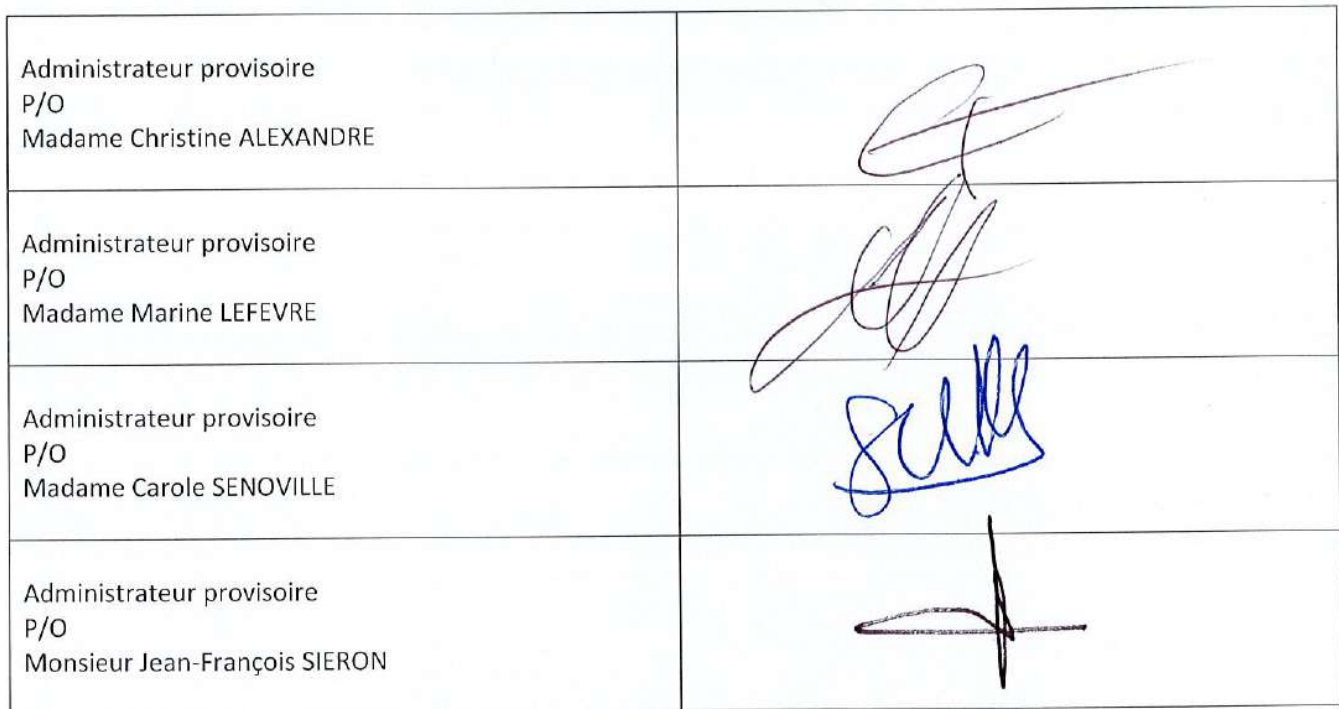 Administrateur provisoire
P/O
Madame Christine ALEXANDRE
Administrateur provisoire
P/O
Madame Marine LEFEVRE
Administrateur provisoire
P/O
Madame Carole SENOVILLE
Administrateur provisoire
P/O
Monsieur Jean-François SIERON